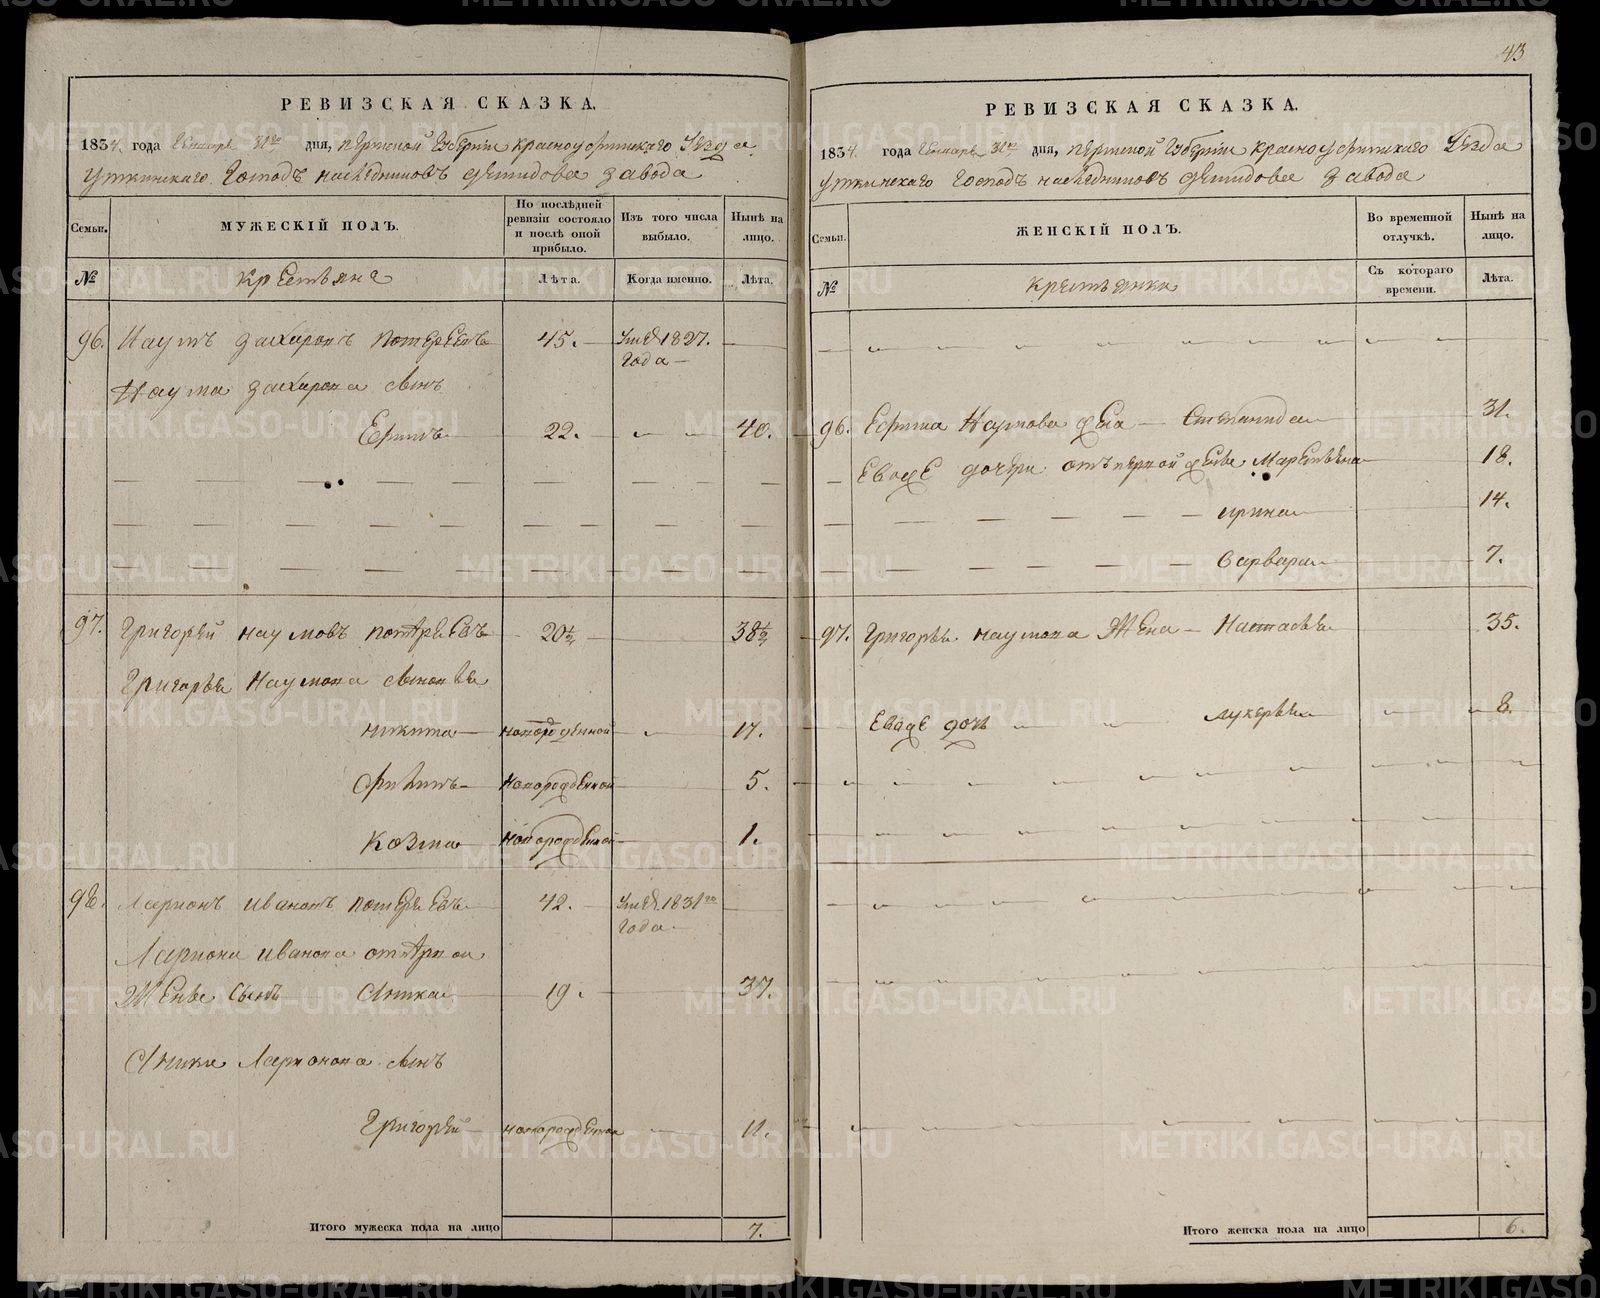 43
РЕВИЗСКАЯ СКАЗКА.
1834. года Генваря 31го дня, пермской губернии красноуфимскаго уезда
уткинскаго Господъ наследниковъ демидова завода
Семьи.
МУЖЕСКІЙ ПОЛЪ.
По послѣдней ревизіи состояло и послѣ оной прибыло.
Изъ того числа выбыло.
Нынѣ на лицо.
№
крестьяне
Лѣта.
Когда именно.
Лѣта.
96. Наумъ захаровъ потереевъ 45. Умре 1827. года
Наума захарова сынъ
Ефимъ 22. 40.
97. Григорей наумовъ потереевъ 20½ 38½
Григорья Наумова сыновья
никита новорожденной 17.
филипъ новорожденной 5.
козма новорожденной 1.
98. Ларионъ ивановъ потереевъ 42. Умре 1831го года
Лариона иванова отпервой
Жены Сынъ Аника 19. 37.
Аники Ларионова сынъ
Григорей новорожденной 11.
Итого мужеска пола на лицо 7.
РЕВИЗСКАЯ СКАЗКА.
1834. года Генваря 31го дня, пермской губернии красноуфимскаго уезда
уткинскаго Господъ наследниковъ демидова завода
Семьи.
ЖЕНСКІЙ ПОЛЪ.
Во временной отлучкѣ.
Нынѣ на лицо.
№
крестьянки
Съ котораго времени.
Лѣта.
96. Ефима Наумова жена Степанида 31.
Евоже дочери отъ первой жены Маремьяна 18.
ирина 14.
варвара 7.
97. Григорья наумова Жена Настасья 35.
Евоже дочь лукерья 8.
Итого женска пола на лицо 6.
METRIKI.GASO-URAL.RU